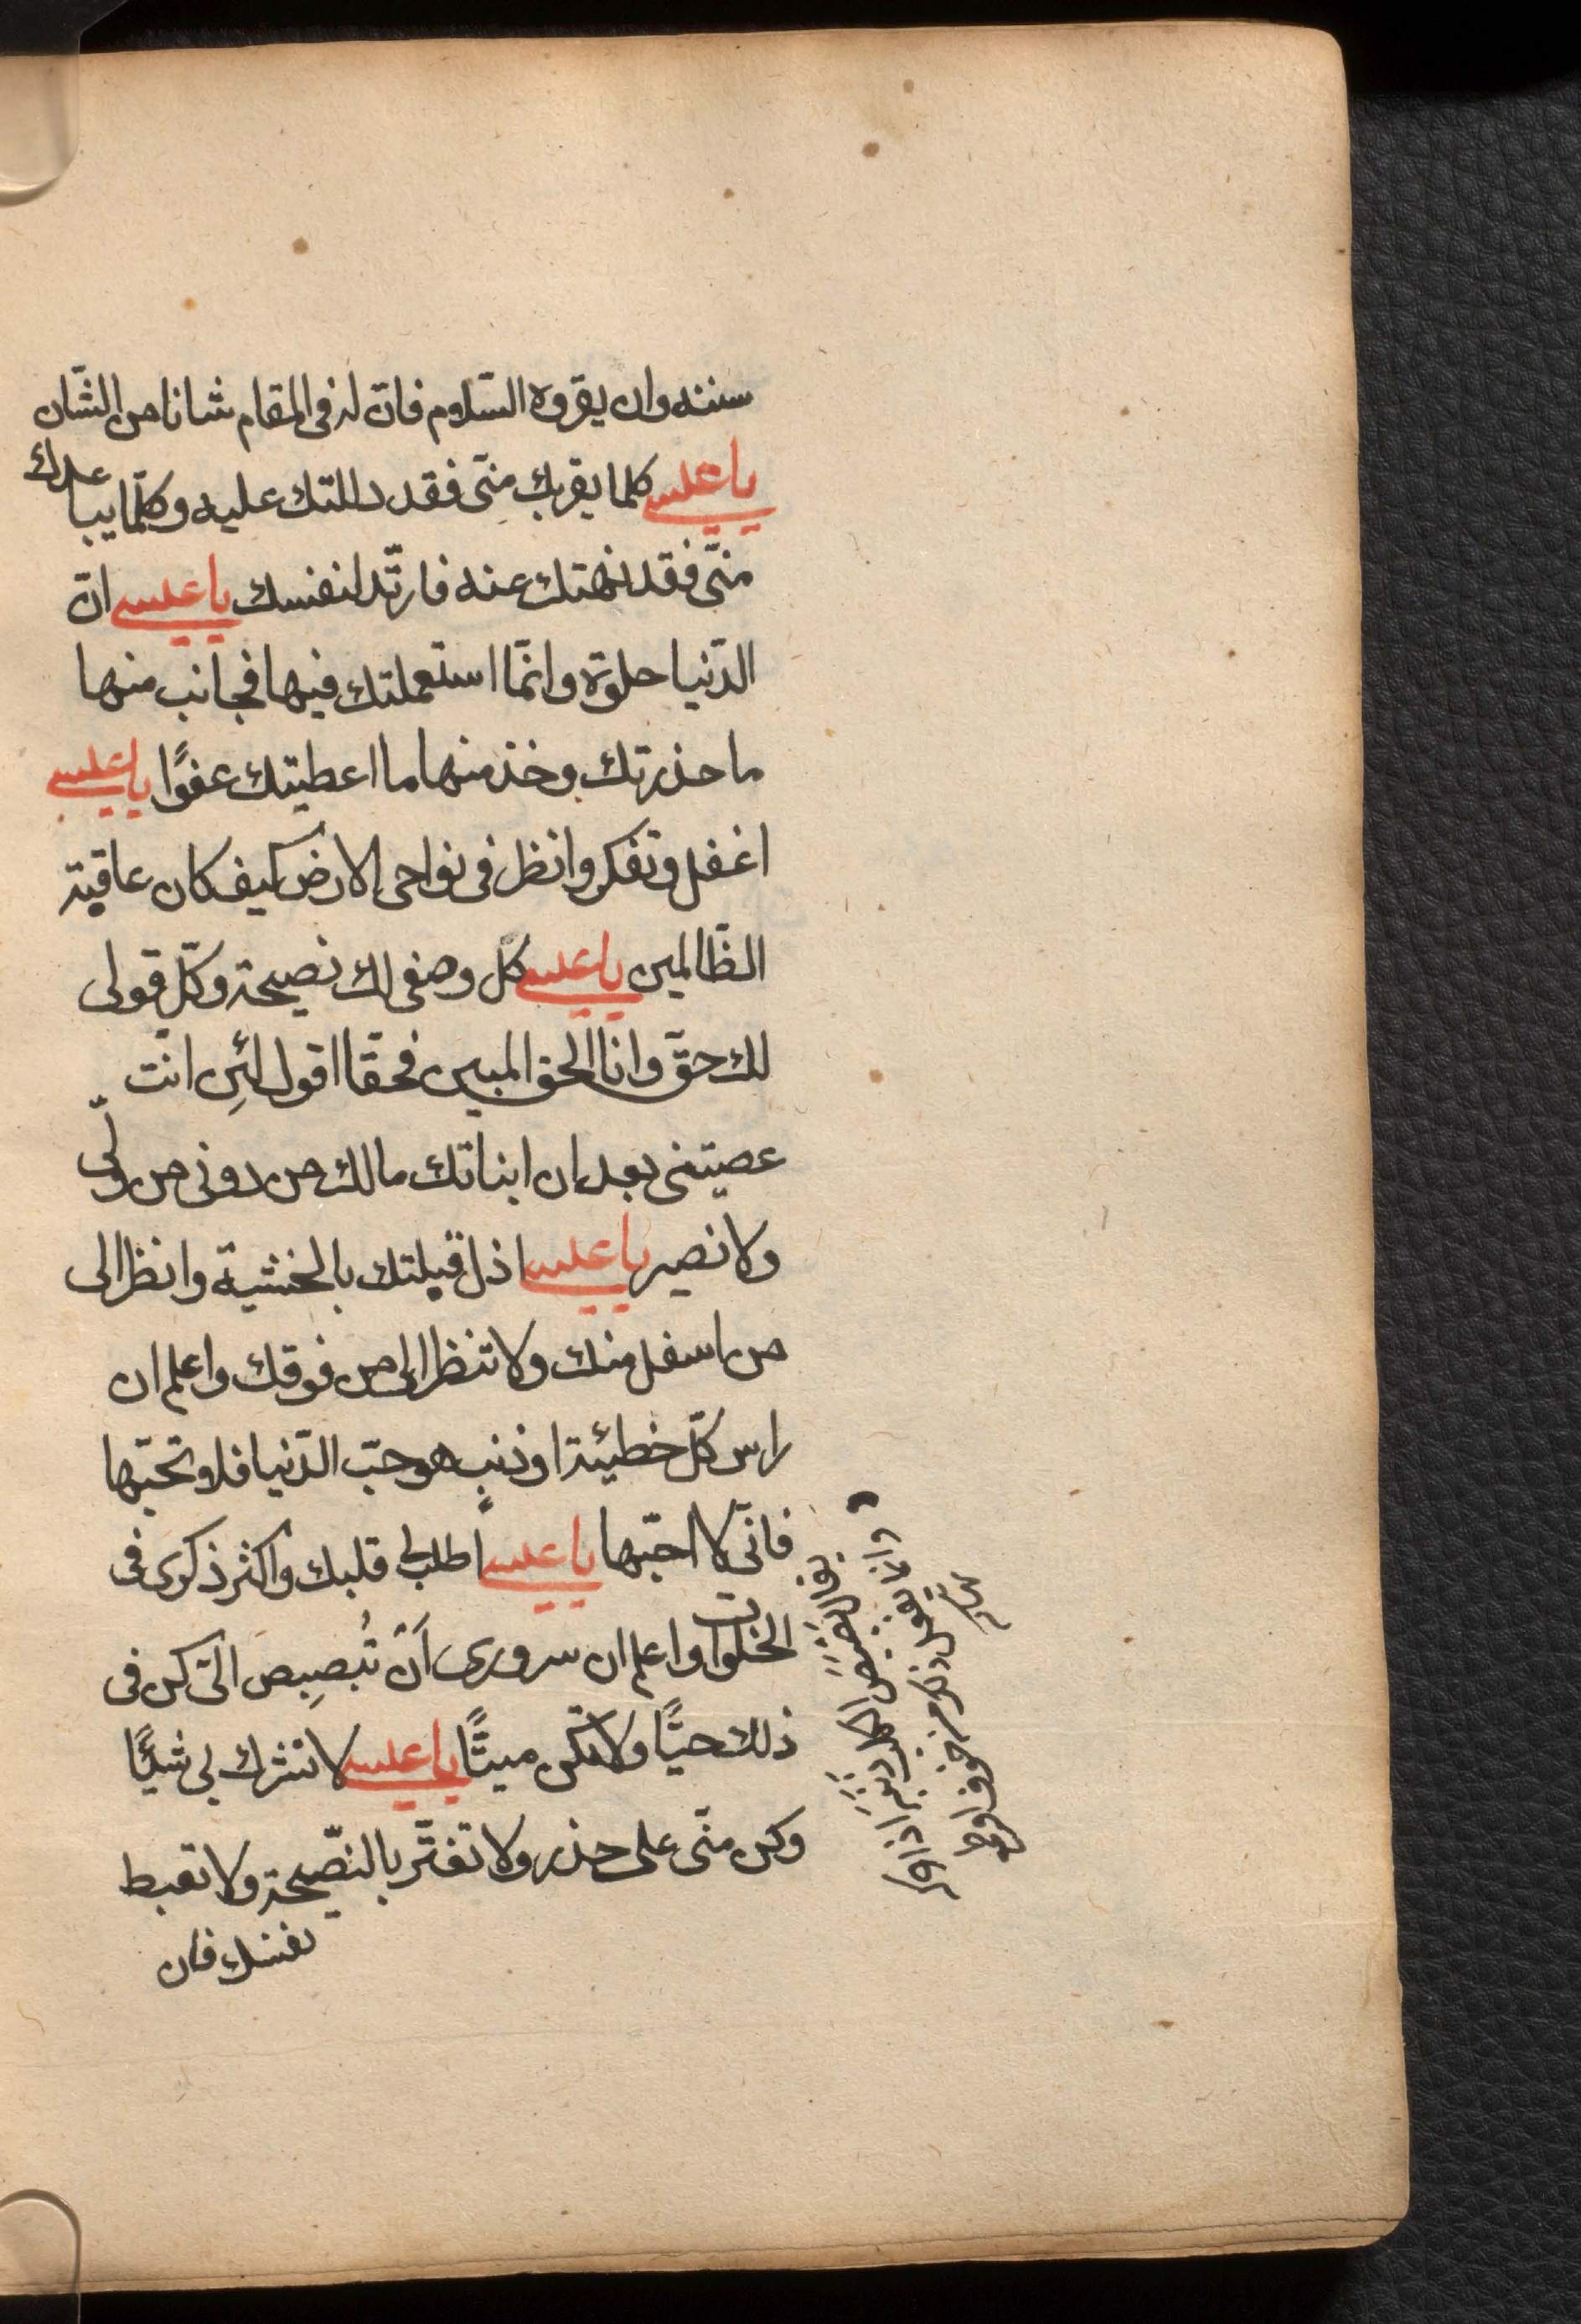 سننه وان يقروه السّلام فانّ له فى المقام شانا من الشّان
يا عيسى كلما يقربك منّى فقد دللتك عليه وكلّما يباعدك
منّى فقد نهتك عنه فارتّد لنفسك يا عيسى انّ
الدّنيا حلوة وانّما استعملتك فيها فجانب منها
ما حذرتك وخذ منها ما اعطيتك عفوًا يا عيسى
اغفل وتفكر وانظر فى نواحى الارض كيف كان عاقبة
الظّالمين يا عيسى كلّ وصفى لك نصيحة وكلّ قولى
لك حقّ وانا الحق المبين فحقّا اقول لئِن انت
عصيتنى بعد ان انباتك مالك من دونى من ولّى
ولا نصير يا عيسى اذل قبلتك بالخشية وانظر الى
من اسفل منك ولا تنظر الى من فوقك واعلم ان
راس كلّ خطيئة او ذنب هو حبّ الدّنيا فلا تحبّها
فانّى لا احبّها يا عيسى اطلب لى قلبك واكثر ذكرى فى
الخلوات واعلم ان سرورى اَنّ تُبصبِص الىّ كن فى
ذلك حيًّا ولا تكن ميتًّا يا عيسى لا تشرك بى شيئًا
وكن منّى على حذر ولا تغتّر بالنّصيحة ولا تغبط
نفسك فان
يقال بصبص الكلب ذنبه اذا حركه
وانما يفعل ذلك من خوف او طمع